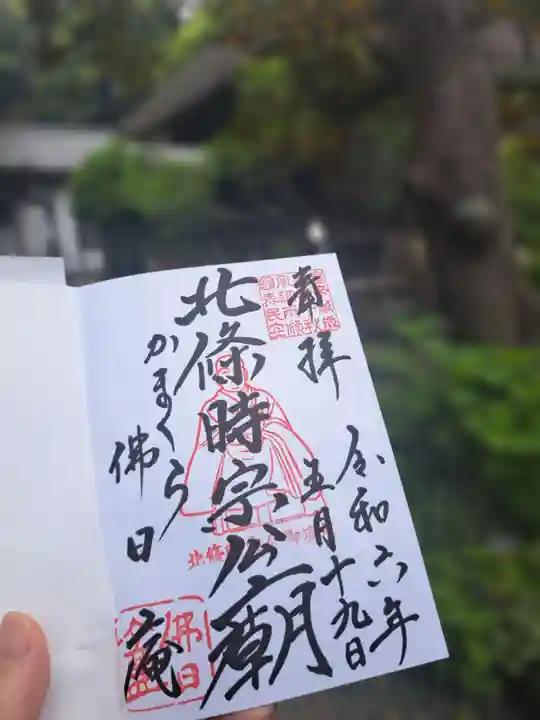 奉拝
令和六年
五月十九日
北條時宗公廟
かまくら
佛日庵
佛日